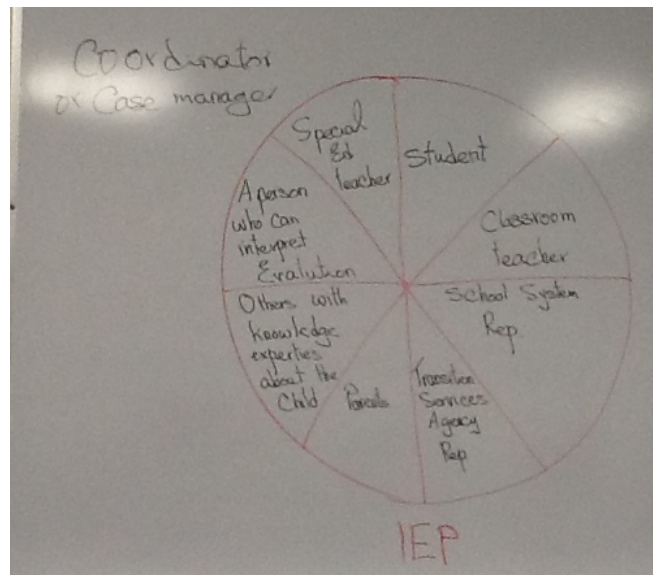 Coordinator
or Case manager
Special
Ed
teacher
Student
Classroom
teacher
School System
Rep.
Transition
Services
Agency
Rep
Parents
Others with
knowledge
experties
about the
Child
A person
who can
interpret
Evalution
IEP